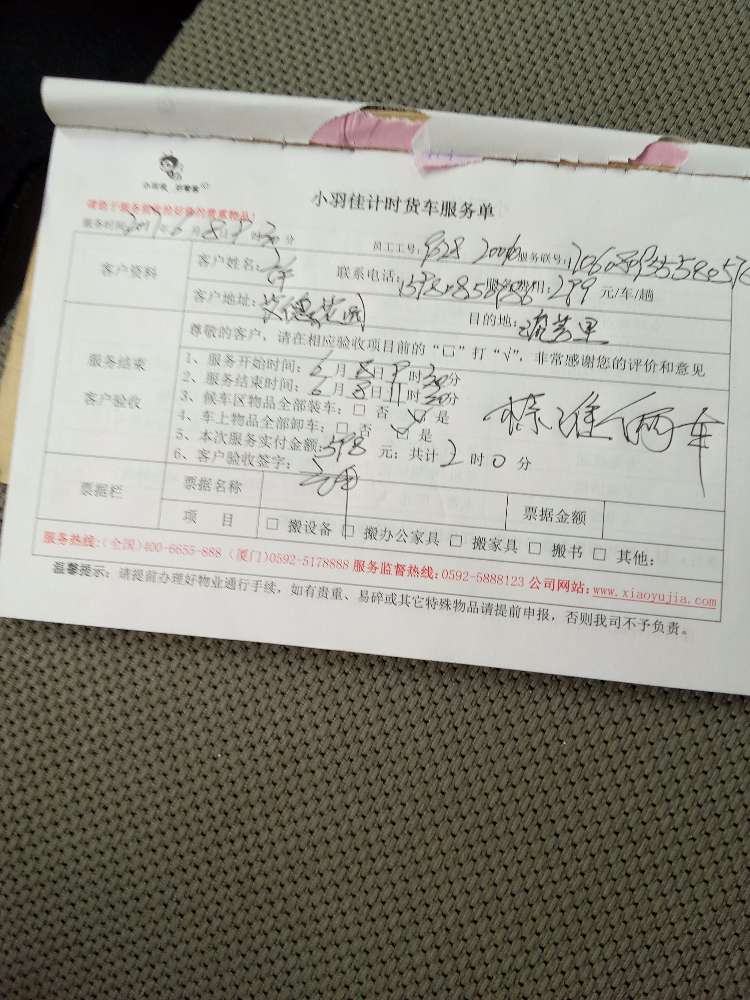 小羽佳计时货车服务单
服务时间:2017年6月8日9时30分 员工工号:
客户资料 客户姓名: 联系电话: 服务费用:299 元/车/趟
客户地址: 目的地:
尊敬的客户，请在相应验收项目前的“□”打“√”，非常感谢您的评价和意见
服务结束
客户验收
1、服务开始时间:6月8日9时30分
2、服务结束时间:6月8日11时30分
3、候车区物品全部装车:□ 否 ☑ 是
4、车上物品全部卸车:□ 否 ☑ 是
5、本次服务实付金额:598 元; 共计2时0分
6、客户验收签字:
标准俩车
票据栏 票据名称 票据金额
项 目 □ 搬设备 □ 搬办公家具 □ 搬家具 □ 搬书 □ 其他:
服务热线:(全国)400-6655-888 (厦门)0592-5178888 服务监督热线:0592-5888123 公司网站:www.xiaoyujia.com
温馨提示: 请提前办理好物业通行手续，如有贵重、易碎或其它特殊物品请提前申报，否则我司不予负责。